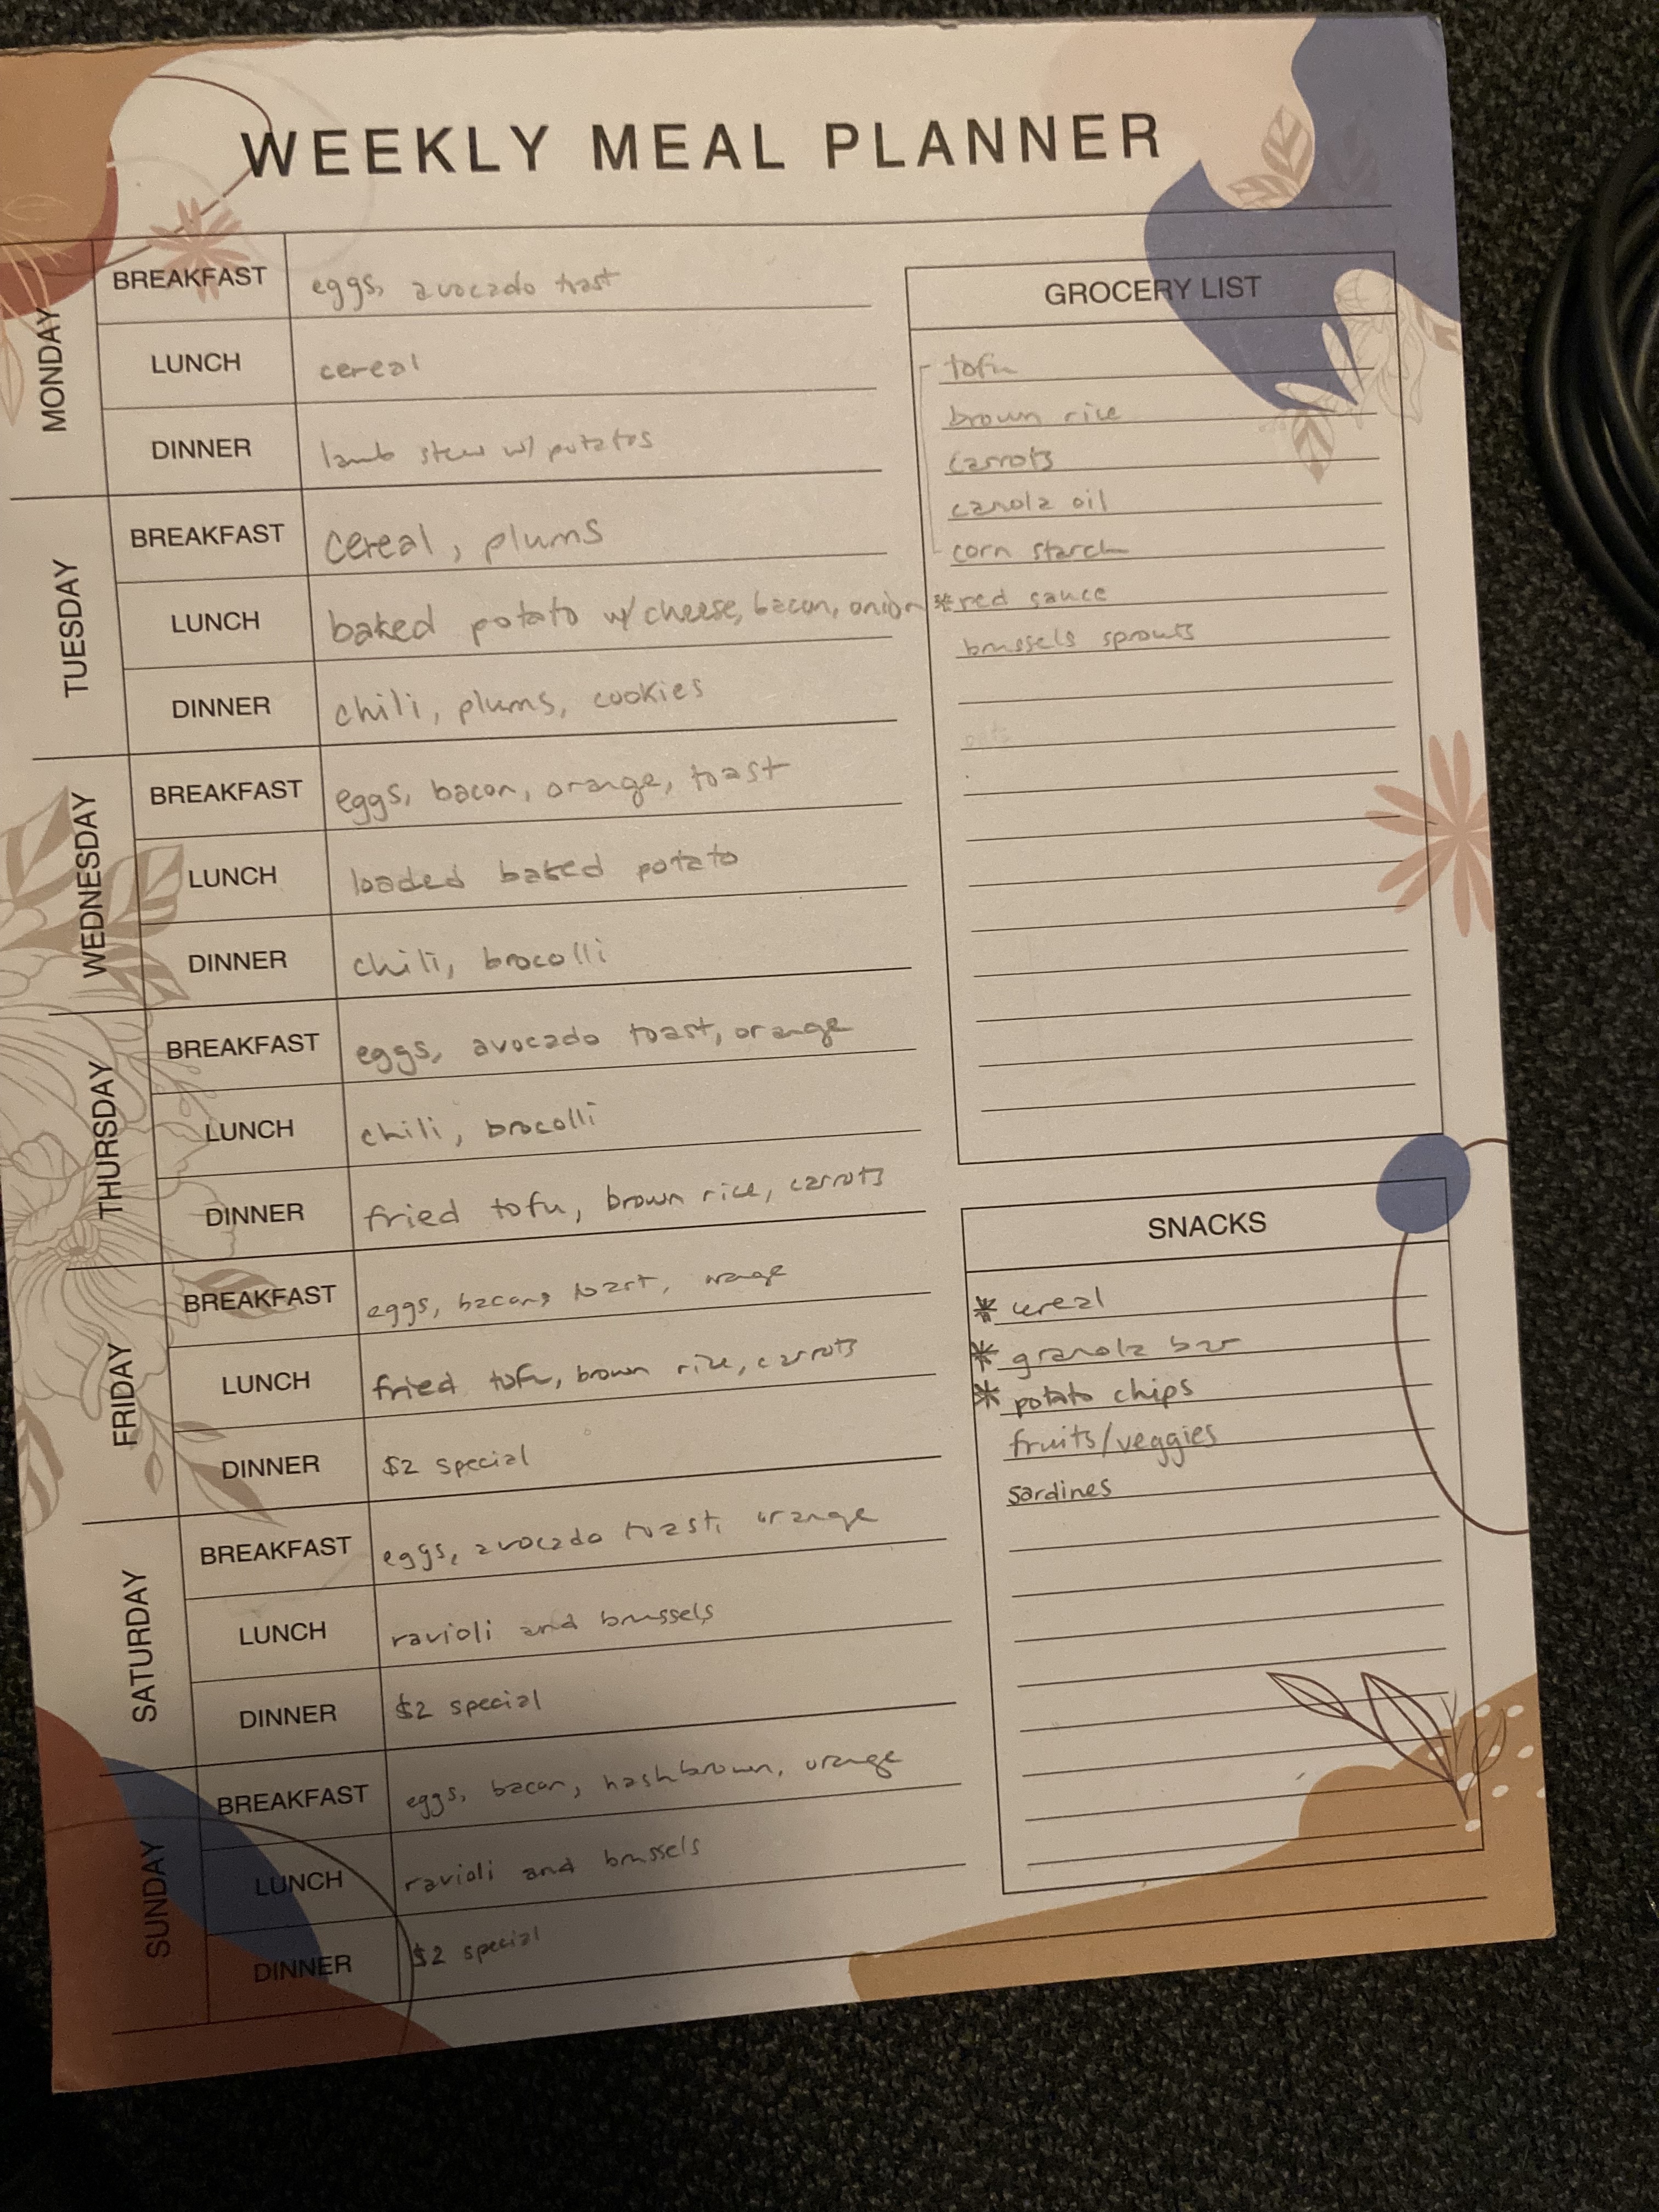 WEEKLY MEAL PLANNER
MONDAY
BREAKFAST
eggs, avocado toast
LUNCH
cereal
DINNER
lamb stew w/ potatos
TUESDAY
BREAKFAST
cereal, plums
LUNCH
baked potato w/ cheese, bacon, onion
DINNER
chili, plums, cookies
WEDNESDAY
BREAKFAST
eggs, bacon, orange, toast
LUNCH
loaded baked potato
DINNER
chili, brocolli
THURSDAY
BREAKFAST
eggs, avocado toast, orange
LUNCH
chili, brocolli
DINNER
fried tofu, brown rice, carrots
FRIDAY
BREAKFAST
eggs, bacon, toast, orange
LUNCH
fried tofu, brown rice, carrots
DINNER
$2 special
SATURDAY
BREAKFAST
eggs, avocado toast, orange
LUNCH
ravioli and brussels
DINNER
$2 special
SUNDAY
BREAKFAST
eggs, bacon, hashbrown, orange
LUNCH
ravioli and brussels
DINNER
$2 special
GROCERY LIST
tofu
brown rice
carrots
canola oil
corn starch
* red sauce
brussels sprouts
SNACKS
* cereal
* granola bar
* potato chips
fruits/veggies
sardines